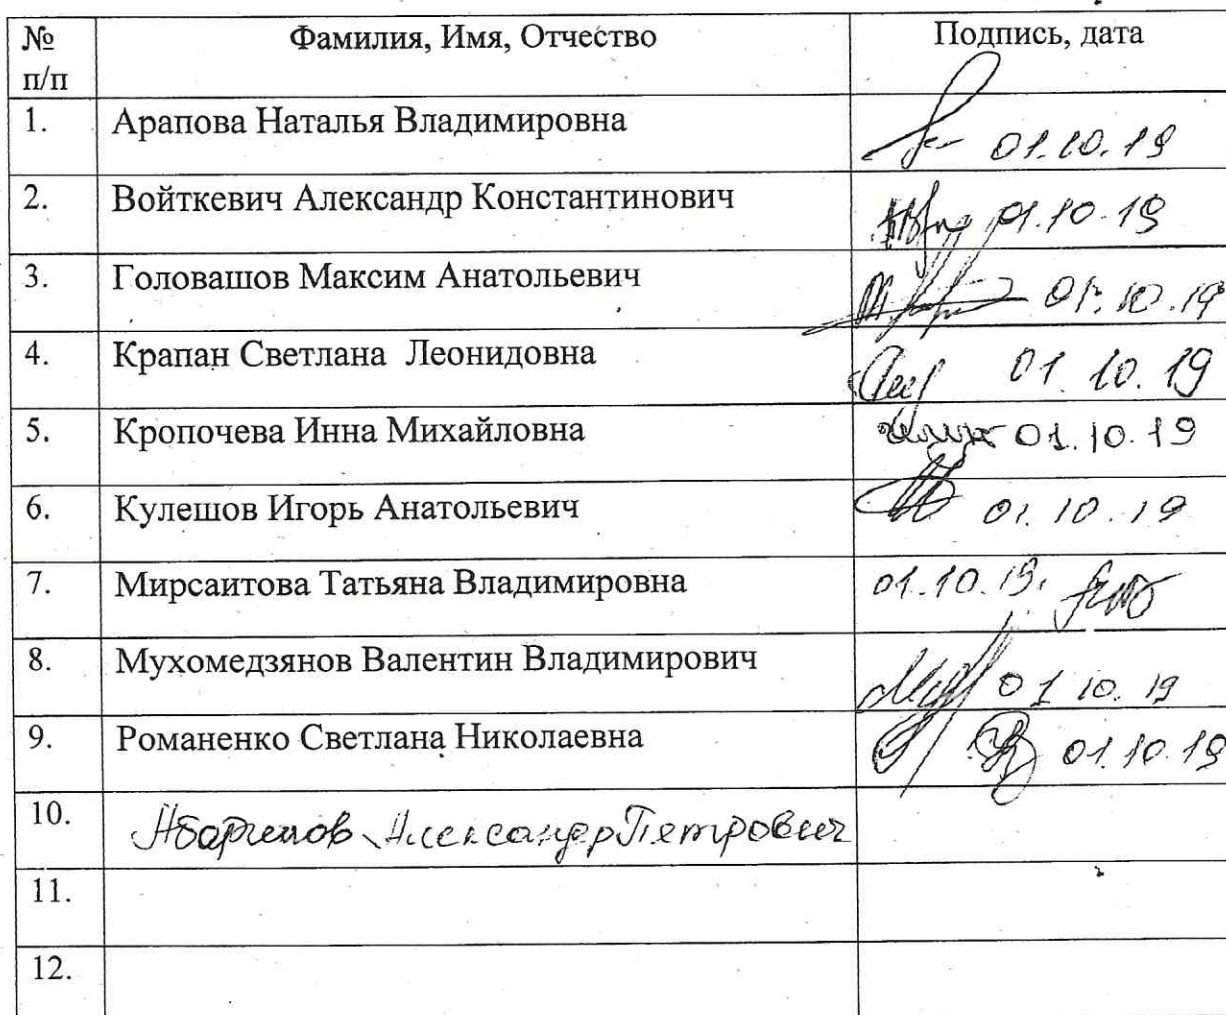 № п/п Фамилия, Имя, Отчество Подпись, дата
1. Арапова Наталья Владимировна 01.10.19
2. Войткевич Александр Константинович 01.10.19
3. Головашов Максим Анатольевич 01.10.19
4. Крапан Светлана Леонидовна 01.10.19
5. Кропочева Инна Михайловна 01.10.19
6. Кулешов Игорь Анатольевич 01.10.19
7. Мирсаитова Татьяна Владимировна 01.10.19.
8. Мухомедзянов Валентин Владимирович 01 10. 19
9. Романенко Светлана Николаевна 01.10.19
10. Александр Петрович
11.
12.